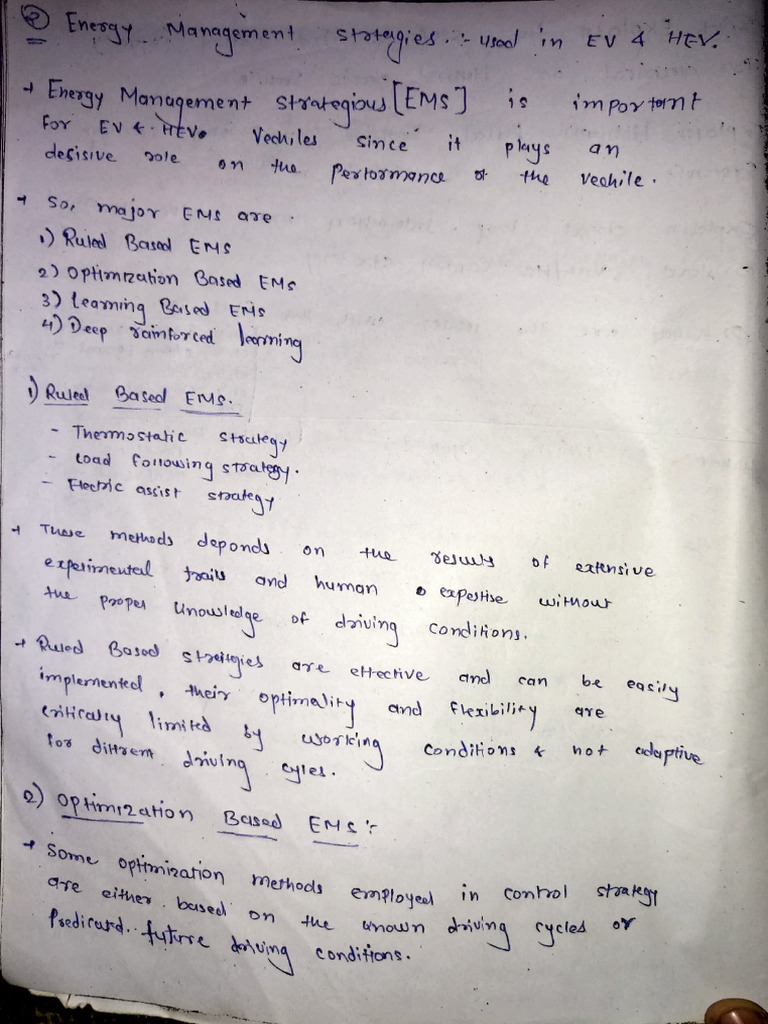 ② Energy Management stratergies :- used in EV & HEV.
→ Energy Management strategious [EMS] is important
for EV & HEV. Vechiles since it plays an
desisive role on the performance of the vechile.
→ So, major EMS are.
1) Ruled Based EMS
2) Optimization Based EMS
3) Learning Based EMS
4) Deep rainforced learning
1) Ruled Based EMS.
- Thermostatic strategy
- Load following strategy.
- Electric assist strategy
→ These methods deponds on the results of extensive
experimental trails and human expestise without
the proper knowledge of driving conditions.
→ Ruled Based strategies are effective and can be easily
implemented, their optimality and flexibility are
critically limited by working conditions & not adaptive
for diffrent driving cyles.
2) Optimization Based EMS :-
→ Some optimization methods employed in control strategy
are either based on the known driving cycles or
Predicted future driving conditions.